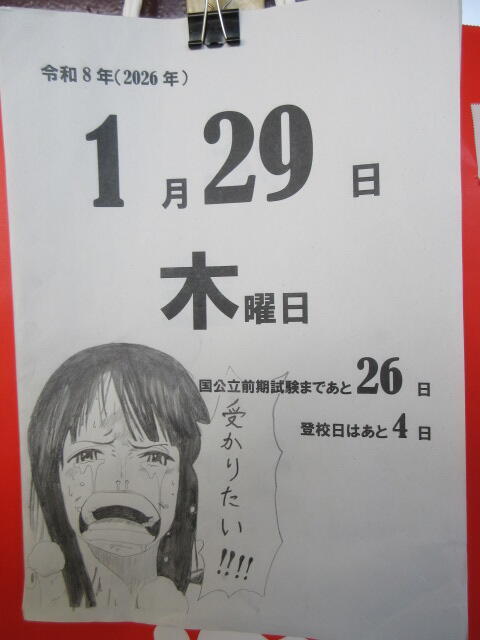 令和8年(2026年)
1月29日
木曜日
国公立前期試験まであと26日
登校日はあと4日
受かりたい!!!!